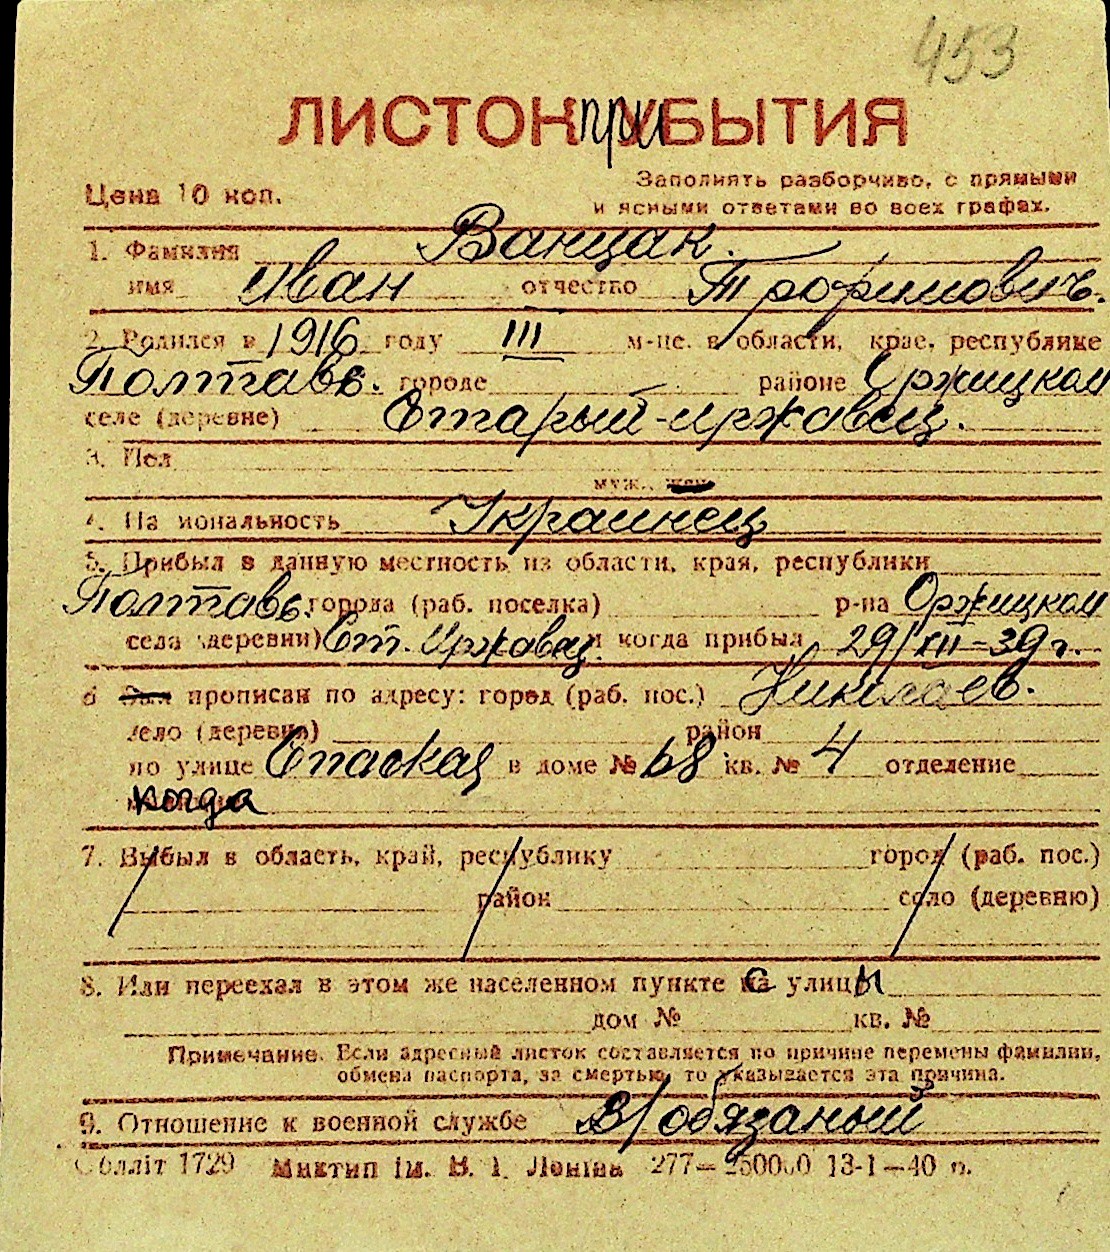 453
ЛИСТОК приБЫТИЯ
Цена 10 коп.
Заполнять разборчиво, с прямыми
и ясными ответами во всех графах.
1. Фамилия Ванцак.
имя Иван отчество Трофимович.
2. Родился в 1916 году III м-це. в области, крае, республике
Полтавс. городе районе Оржицком
селе (деревне) Старый-иржавец.
3. Пол
муж., жен.
4. На иональность Украинец
5. Прибыл в данную местность из области, края, республики
Полтавс. города (раб. поселка) р-на Оржицком
села (деревни) Ст. Иржавец. и когда прибыл 29/XII-39 г.
6 Был прописан по адресу: город (раб. пос.) Николаев.
село (деревня) район
по улице Спаская в доме № 68 кв. № 4 отделение
когда
7. Выбыл в область, край, республику город (раб. пос.)
район село (деревню)
8. Или переехал в этом же населенном пункте с улицы
дом № кв. №
Примечание. Если адресный листок составляется по причине перемены фамилии,
обмена паспорта, за смертью, то указывается эта причина.
9. Отношение к военной службе В/обязаный
Облліт 1729 Миктип ім. В. І. Леніна 277—250000 13-1—40 р.